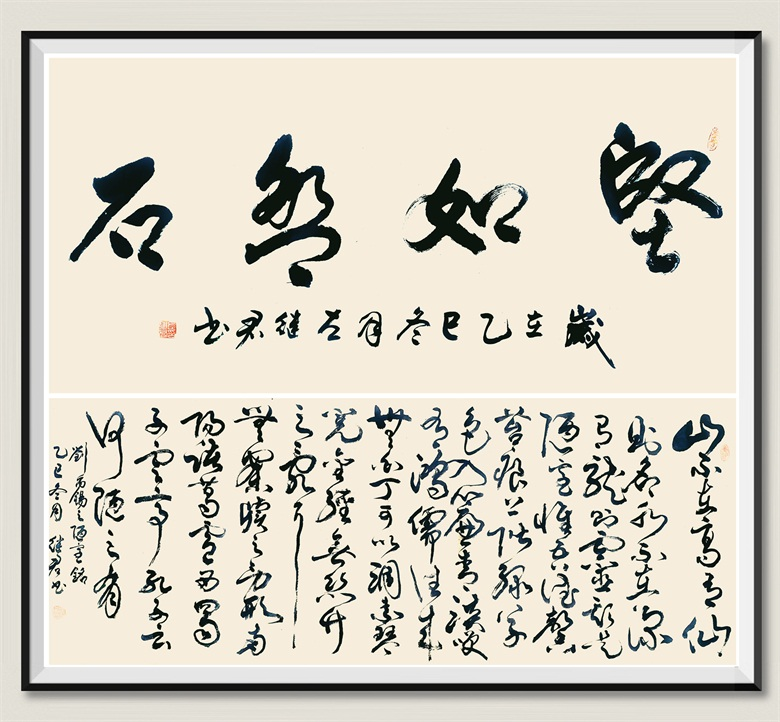 堅如磐石
歲在乙巳冬月左继君书
山不在高有仙
则名水不在深
有龍则靈斯是
陋室惟吾德馨
苔痕上階绿草
色入簾青談笑
有鴻儒往来
無白丁可以調素琴
览金經無丝竹
之乱耳
無案牘之劳形南
陽諸葛廬西蜀
子雲亭孔子云
何陋之有
劉禹錫之陋室銘
乙巳冬月继君书